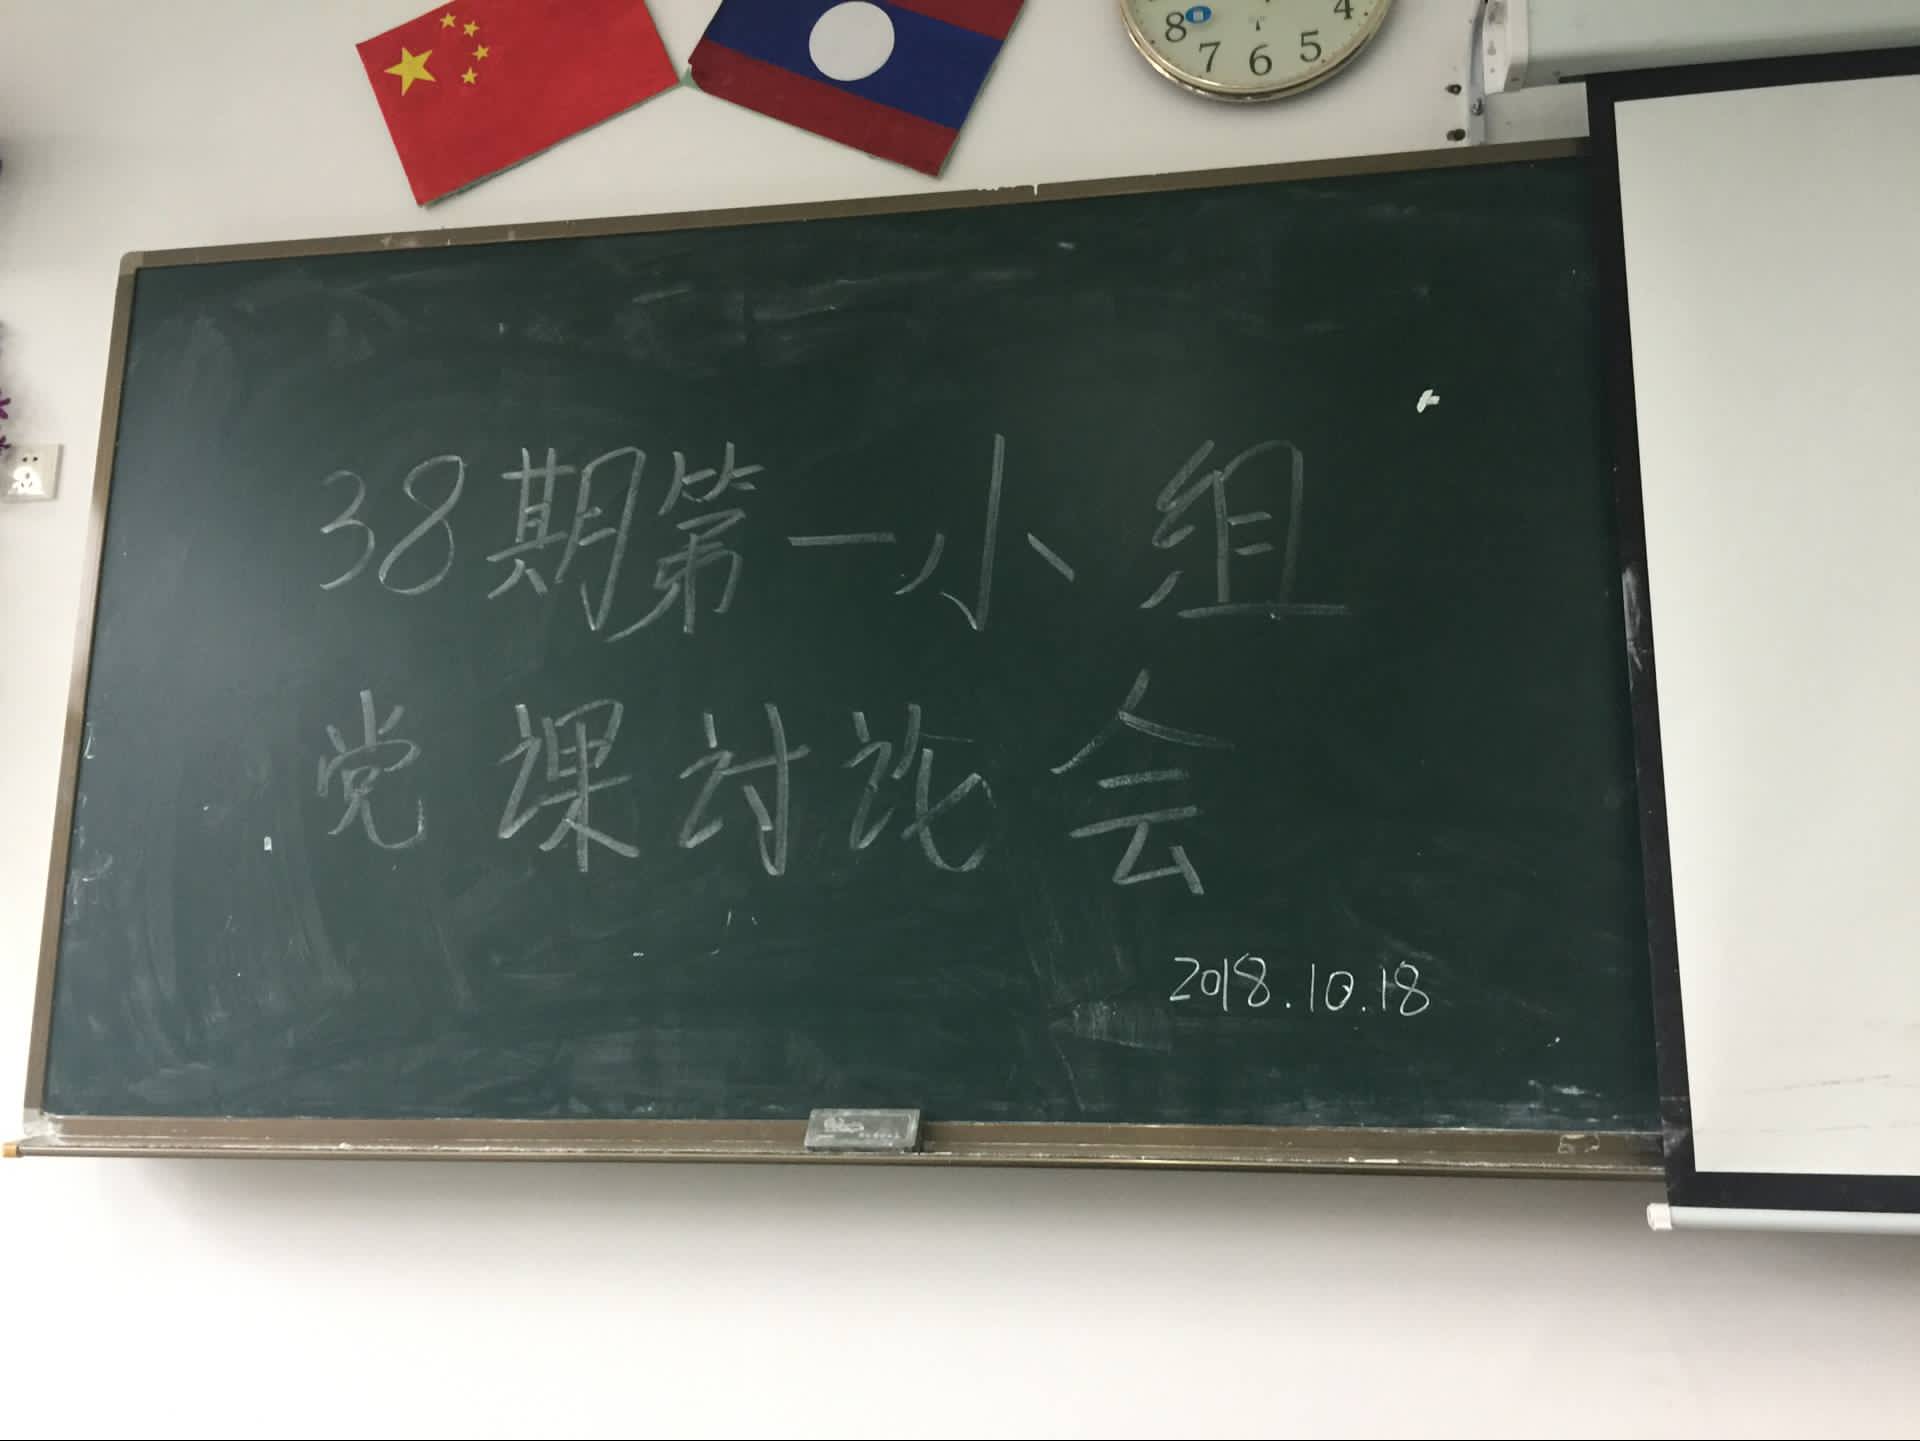 4
8
7 6 5
38期第一小组
党课讨论会
2018.10.18